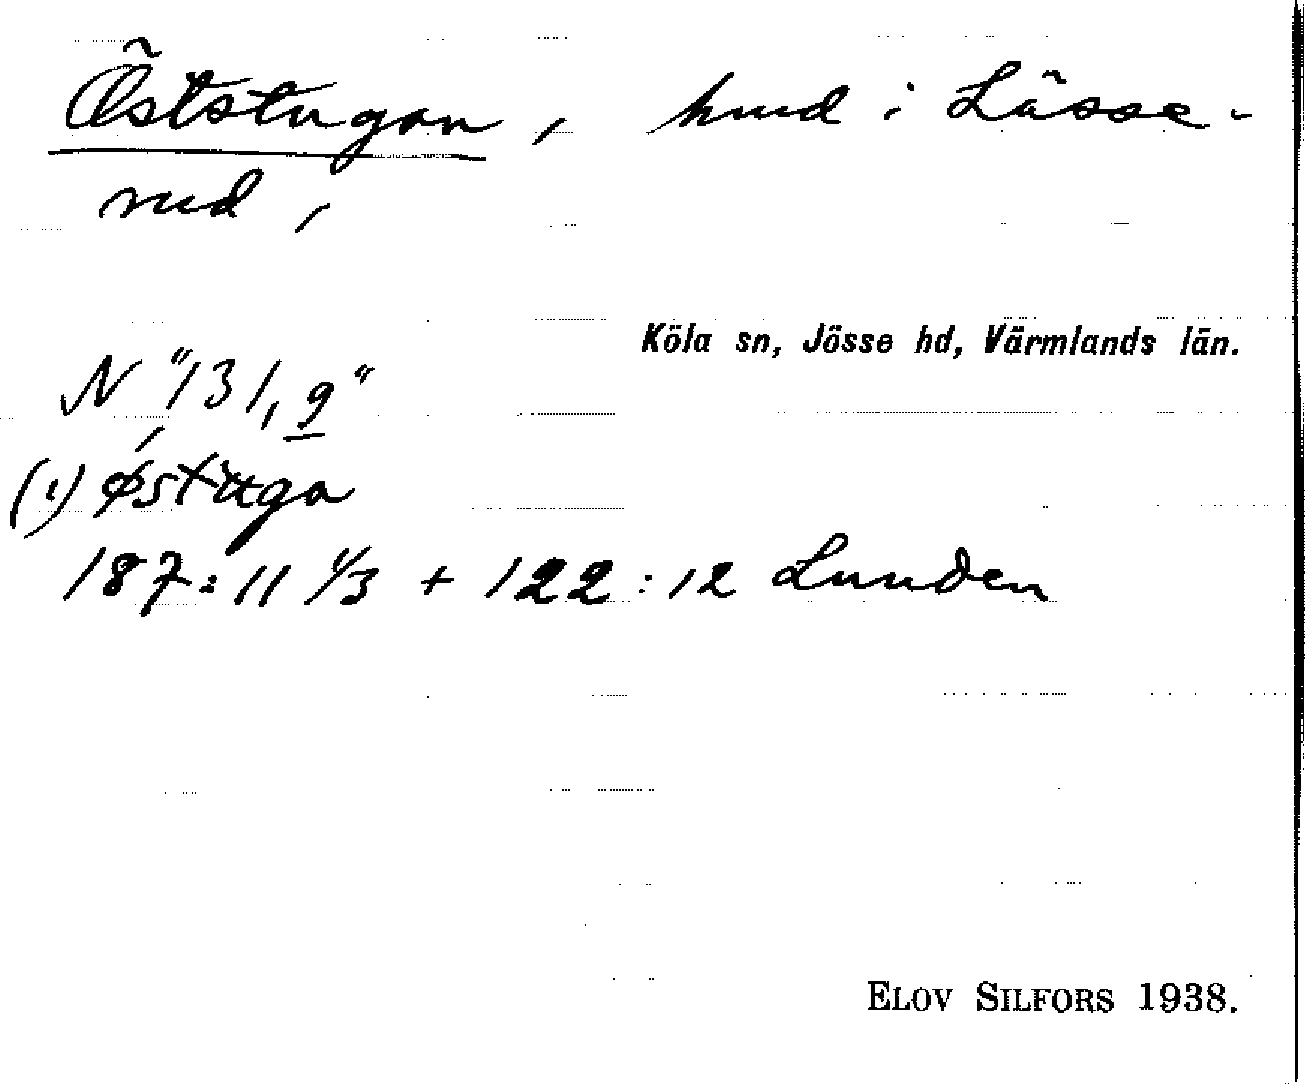 Öststugan, hmd i Lässe-
rud,
Köla sn, Jösse hd, Värmlands län.
N "131,9"
(i) østuga
187:11 1/3 + 122:12 Lunden
ELOV SILFORS 1938.